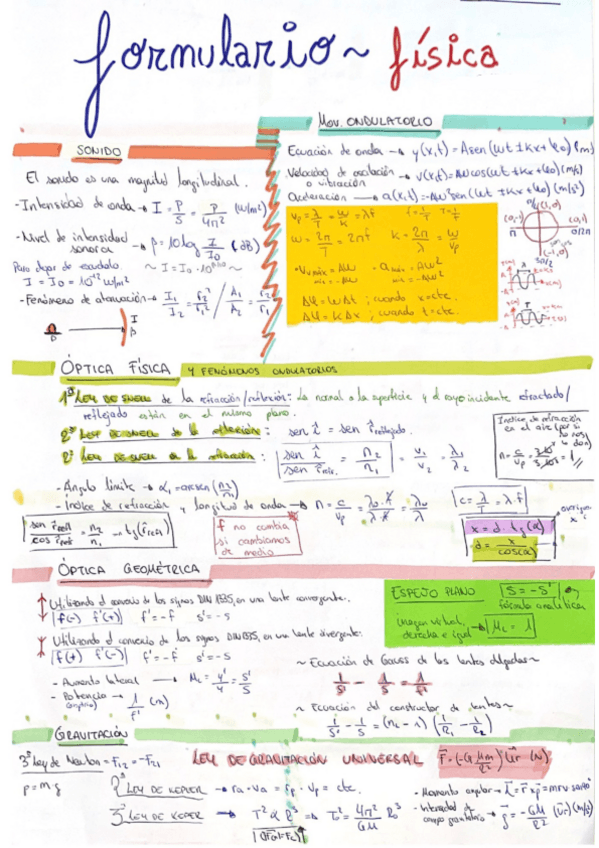 formulario ~ física
MOV. ONDULATORIO
SONIDO
El sonido es una magnitud longitudinal.
- Intensidad de onda → I = P/S = P/4πr² (W/m²)
- Nivel de intensidad sonora → β = 10 log I/I₀ (dB)
Para dejar de
I = I₀ = 10⁻¹² W/m²
- Fenómeno de atenuación → I₁/I₂ = r₂²/r₁² / A₁/A₂ = r₂/r₁
I
β
Ecuación de onda → y(x,t) = A sen (ωt ± kx + φ₀) (m)
Velocidad de oscilación o vibración → v(x,t) = Aω cos (ωt ± kx + φ₀) (m/s)
Aceleración → a(x,t) = -Aω² sen (ωt ± kx + φ₀) (m/s²)
vp = λ/T = ω/k = λf f = 1/T T = 1/f
ω = 2π/T = 2πf k = 2π/λ = ω/vp
ΔΨ = ωΔt ; cuando x = cte.
ΔΨ = kΔx ; cuando t = cte.
ÓPTICA FÍSICA Y FENÓMENOS ONDULATORIOS
1ª LEY DE SNELL de la refracción/reflexión: La normal a la superficie y el rayo incidente refractado/
reflejado están en el mismo plano.
2ª LEY DE SNELL DE LA REFLEXIÓN: sen î = sen r̂ reflejado.
2ª LEY DE SNELL DE LA REFRACCIÓN: sen î / sen r̂ refr. = n₂/n₁ = v₁/v₂ = λ₁/λ₂
Índice de refracción
en el aire (por si
no nos
lo dan)
- Ángulo límite → α₁ = arcsen (n₂/n₁)
- Índice de refracción y longitud de onda → n = c/vp = λ₀·f/λ·f = λ₀/λ
c = λ/T = λ·f
sen r̂ refl / cos r̂ ref = n₂/n₁ → tg (r̂ refl)
f no cambia
si cambiamos
de medio
x = d · tg(α)
d = x/cos(α)
ÓPTICA GEOMÉTRICA
Utilizando el convenio de los signos DIN 1335, en una lente convergente.
f(-) f'(+) f' = -f s' = -s
Utilizando el convenio de los signos DIN 1335, en una lente divergente.
f(+) f'(-) f' = -f s' = -s
- Aumento lateral → M_L = y'/y = s'/s
- Potencia → 1/f' (m)
ESPEJO PLANO s = -s'
fórmula analítica
imagen virtual,
derecha e igual → M_L = 1
~ Ecuación de Gauss de las lentes delgadas ~
1/s' - 1/s = 1/f'
~ Ecuación del constructor de lentes ~
1/s' - 1/s = (n_L - 1) (1/R₁ - 1/R₂)
GRAVITACIÓN
3ª Ley de Newton = F₁₂ = -F₂₁
p = m · g
LEY DE GRAVITACIÓN UNIVERSAL F = (-G Mm/R²) ur (N)
2ª LEY DE KEPLER → ra · va = rp · vp = cte.
3ª LEY DE KEPLER → T² α R³ → T² = 4π²/GM R³
(Fg = Fc)
- Momento angular → L = r x p = mrv senα
- Intensidad de campo gravitatorio → g = -GM/R² (ur) (m/s²)